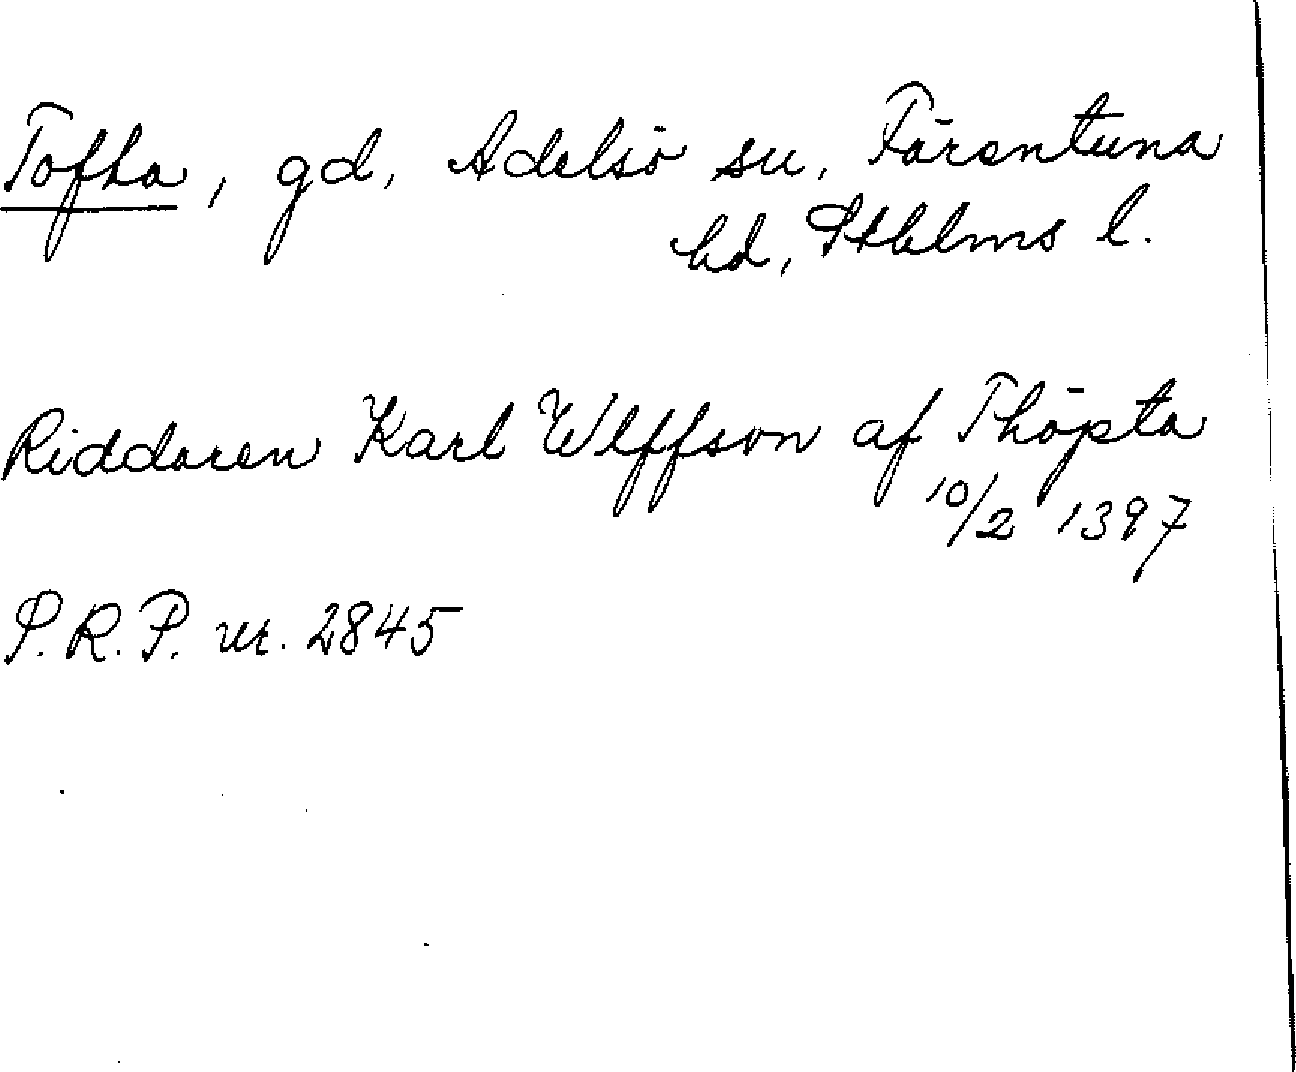 Tofta, gd, Adelsö sn, Färentuna
hd, Sthlms l.
Riddaren Karl Wlffson af Thöpta
10/2 1397
S.R.P. nr. 2845